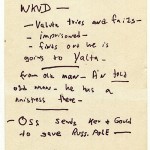 NKVD
— Valuta tries and fails —
— imprisoned —
— finds out he is
going to Yalta —
from old man — A'n told
old man — he has a
mistress there —
— OSS sends Kor & Gould
to save Russ. Pole —